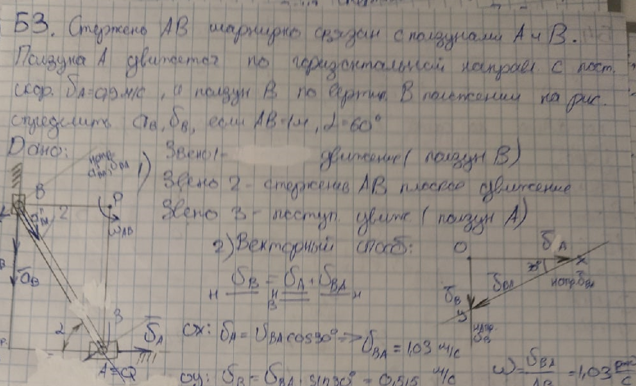 Б3. Стержень AB шарнирно связан с ползунами A и B.
Ползун A движется по горизонтальной направ с пост.
скор. υA=0,9 м/с, а ползун B по вертик. В положении на рис.
определить aB, υB, если AB=1м, α=60°
Дано:
1) Звено 1- движение (ползун B)
Звено 2- стержень AB плоское движение
Звено 3- поступ движ. (ползун A)
2) Векторный способ:
υB = υA + υBA
ox: υA = υBA cos30° => υBA = 1,03 м/с
oy: υB = υBA · sin30° = 0,515 м/с
ω = υBA/AB = 1,03
B
2
P
ωAB
aB
3
υA
A=Q
O
υA
x
30°
υBA
υB
y